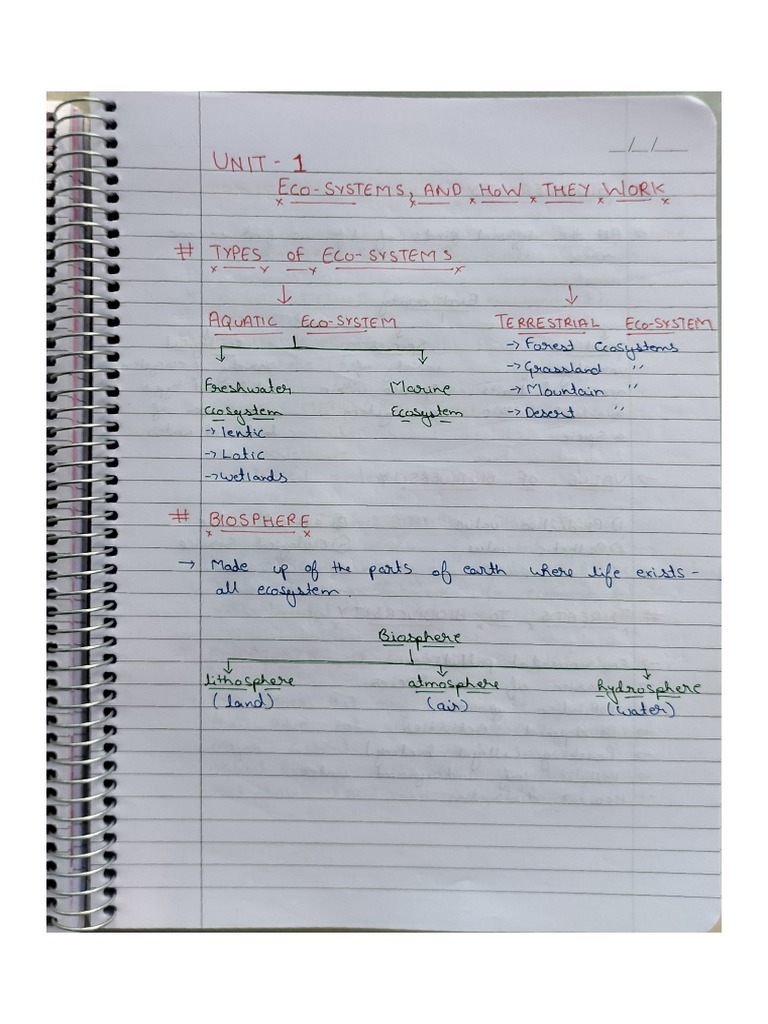 __/__/____
UNIT - 1
ECO-SYSTEMS, AND HOW THEY WORK
# TYPES of ECO-SYSTEMS
↓ ↓
AQUATIC ECO-SYSTEM TERRESTRIAL ECO-SYSTEM
→ Forest Ecosystems
→ Grassland "
Freshwater Marine → Mountain "
Ecosystem Ecosystem → Desert "
→ lentic
→ Lotic
→ wetlands
# BIOSPHERE
→ Made up of the parts of earth where life exists -
all ecosystem.
Biosphere
lithosphere atmosphere hydrosphere
(land) (air) (water)